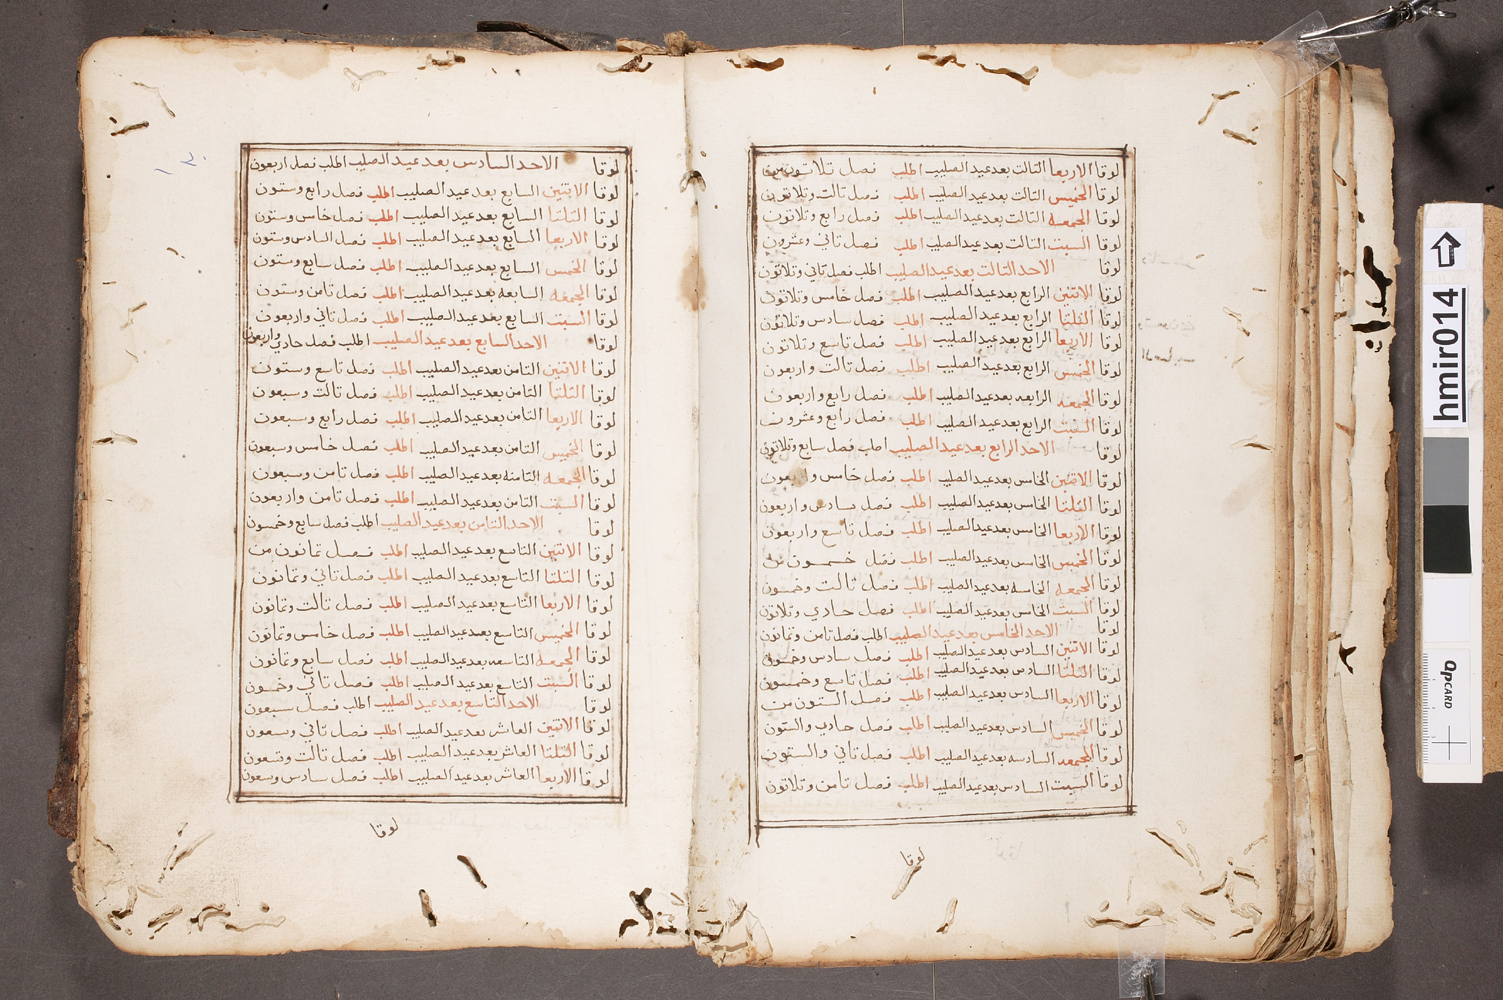 لوقا الاربعا الثالث بعد عيد الصليب اطلب فصل ثلاثون من
لوقا الخميس الثالث بعد عيد الصليب اطلب فصل ثالث وثلاثون
لوقا الجمعه الثالث بعد عيد الصليب اطلب فصل رابع وثلاثون
لوقا السبت الثالث بعد عيد الصليب اطلب فصل ثاني وعشرون
لوقا الاحد الثالث بعد عيد الصليب اطلب فصل ثاني وثلاثون
لوقا الاثنين الرابع بعد عيد الصليب اطلب فصل خامس وثلاثون
لوقا الثلثا الرابع بعد عيد الصليب اطلب فصل سادس وثلاثون
لوقا الاربعا الرابع بعد عيد الصليب اطلب فصل تاسع وثلاثون
لوقا الخميس الرابع بعد عيد الصليب اطلب فصل ثالث واربعون
لوقا الجمعه الرابعه بعد عيد الصليب اطلب فصل رابع واربعون
لوقا السبت الرابع بعد عيد الصليب اطلب فصل رابع وعشرون
لوقا الاحد الرابع بعد عيد الصليب اطلب فصل سابع وثلاثون
لوقا الاثنين الخامس بعد عيد الصليب اطلب فصل خامس واربعون
لوقا الثلثا الخامس بعد عيد الصليب اطلب فصل سادس واربعون
لوقا الاربعا الخامس بعد عيد الصليب اطلب فصل تاسع واربعون
لوقا الخميس الخامس بعد عيد الصليب اطلب فصل خمسون من
لوقا الجمعه الخامسه بعد عيد الصليب اطلب فصل ثالث وخمسون
لوقا السبت الخامس بعد عيد الصليب اطلب فصل حادي وثلاثون
لوقا الاحد الخامس بعد عيد الصليب اطلب فصل ثامن وثمانون
لوقا الاثنين السادس بعد عيد الصليب اطلب فصل سادس وخمسون
لوقا الثلثا السادس بعد عيد الصليب اطلب فصل تاسع وخمسون
لوقا الاربعا السادس بعد عيد الصليب اطلب فصل الستون من
لوقا الخميس السادس بعد عيد الصليب اطلب فصل حادي والستون
لوقا الجمعه السادسه بعد عيد الصليب اطلب فصل ثاني والستون
لوقا السبت السادس بعد عيد الصليب اطلب فصل ثامن وثلاثون
لوقا
لوقا الاحد السادس بعد عيد الصليب اطلب فصل اربعون
لوقا الاثنين السابع بعد عيد الصليب اطلب فصل رابع وستون
لوقا الثلثا السابع بعد عيد الصليب اطلب فصل خامس وستون
لوقا الاربعا السابع بعد عيد الصليب اطلب فصل السادس وستون
لوقا الخميس السابع بعد عيد الصليب اطلب فصل سابع وستون
لوقا الجمعه السابعه بعد عيد الصليب اطلب فصل ثامن وستون
لوقا السبت السابع بعد عيد الصليب اطلب فصل ثاني واربعون
لوقا الاحد السابع بعد عيد الصليب اطلب فصل حادي واربعون
لوقا الاثنين الثامن بعد عيد الصليب اطلب فصل تاسع وستون
لوقا الثلثا الثامن بعد عيد الصليب اطلب فصل ثالث وسبعون
لوقا الاربعا الثامن بعد عيد الصليب اطلب فصل رابع وسبعون
لوقا الخميس الثامن بعد عيد الصليب اطلب فصل خامس وسبعون
لوقا الجمعه الثامنه بعد عيد الصليب اطلب فصل ثامن وسبعون
لوقا السبت الثامن بعد عيد الصليب اطلب فصل ثامن واربعون
لوقا الاحد الثامن بعد عيد الصليب اطلب فصل سابع وخمسون
لوقا الاثنين التاسع بعد عيد الصليب اطلب فصل ثمانون من
لوقا الثلثا التاسع بعد عيد الصليب اطلب فصل ثاني وثمانون
لوقا الاربعا التاسع بعد عيد الصليب اطلب فصل ثالث وثمانون
لوقا الخميس التاسع بعد عيد الصليب اطلب فصل خامس وثمانون
لوقا الجمعه التاسعه بعد عيد الصليب اطلب فصل سابع وثمانون
لوقا السبت التاسع بعد عيد الصليب اطلب فصل ثاني وخمسون
لوقا الاحد التاسع بعد عيد الصليب اطلب فصل سبعون
لوقا الاثنين العاشر بعد عيد الصليب اطلب فصل ثاني وتسعون
لوقا الثلثا العاشر بعد عيد الصليب اطلب فصل ثالث وتسعون
لوقا الاربعا العاشر بعد عيد الصليب اطلب فصل سادس وتسعون
لوقا
hmir014
QPCARD